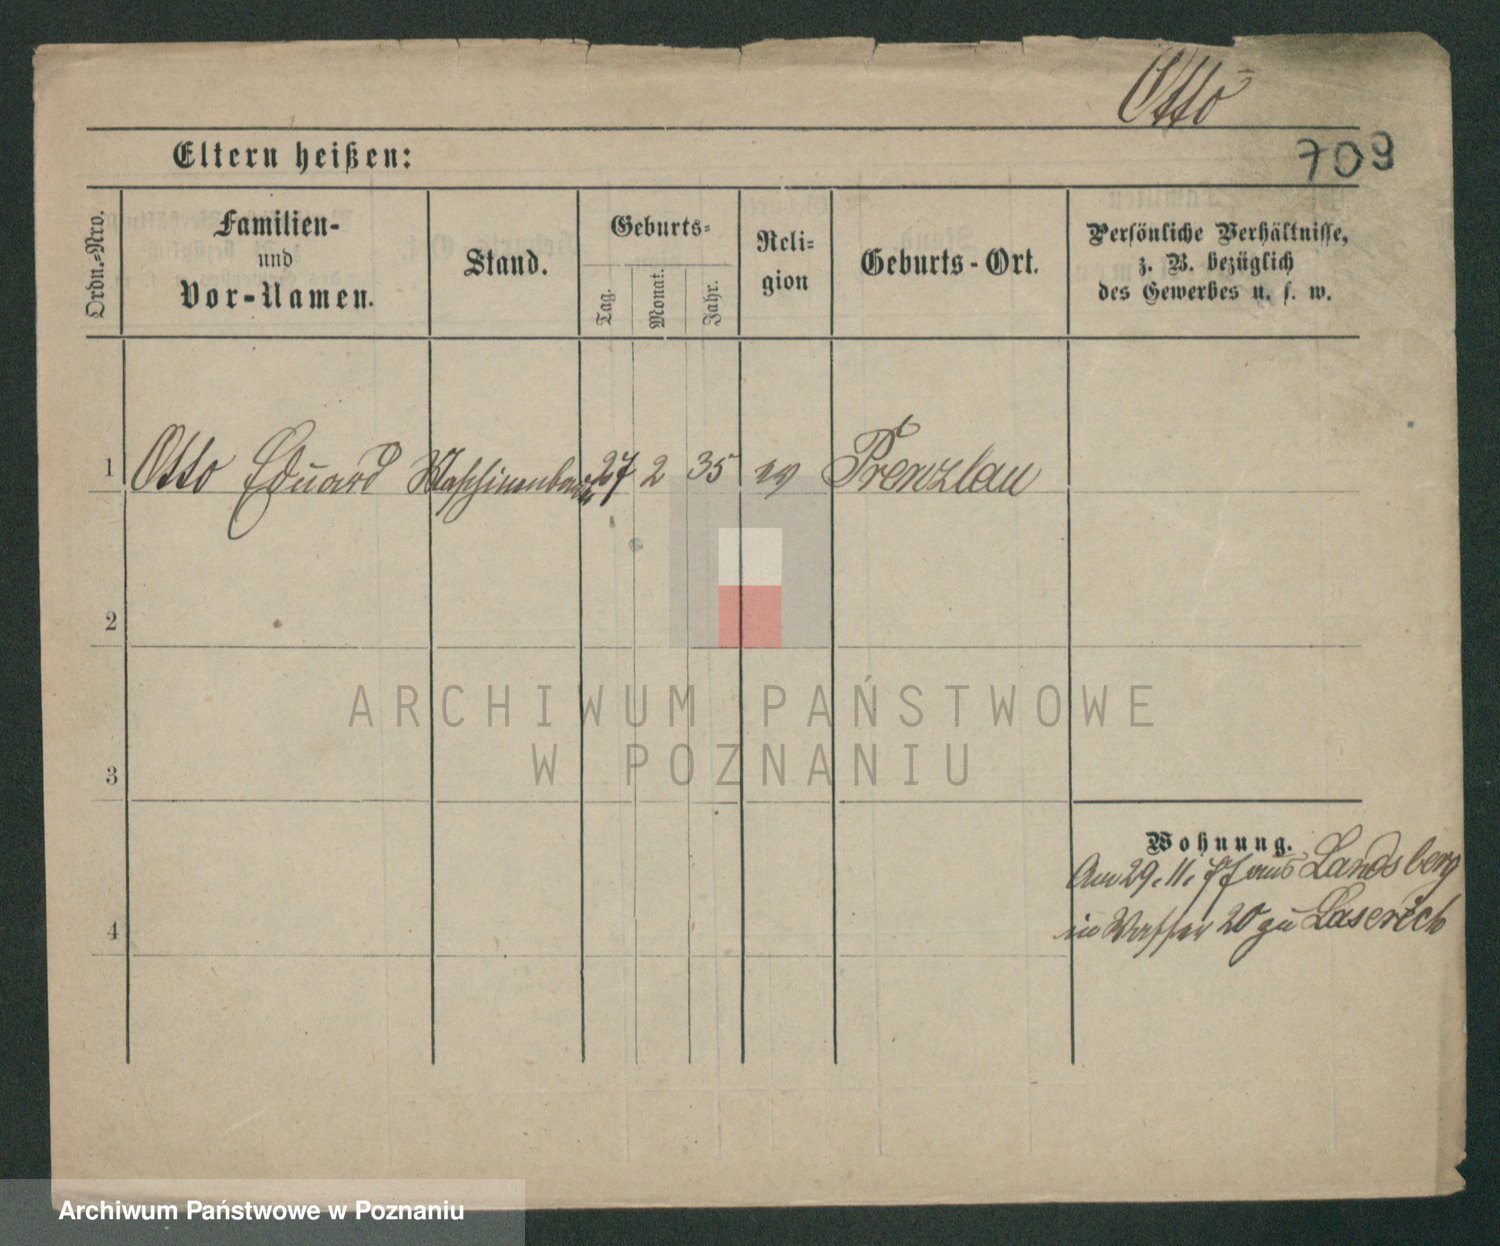 Otto
709
Eltern heißen:
Ordn.-Nro.
Familien-
und
Vor-Namen.
Stand.
Geburts-
Tag.
Monat.
Jahr.
Reli-
gion
Geburts-Ort.
Persönliche Verhältnisse,
z. B. bezüglich
des Gewerbes u. s. w.
1 Otto Eduard 27 2 35 ev Prenzlau
2
3
4
Wohnung.
Am 29. 11. 77 aus Landsberg
in Wasser 20 zu
ARCHIWUM PAŃSTWOWE
W POZNANIU
Archiwum Państwowe w Poznaniu